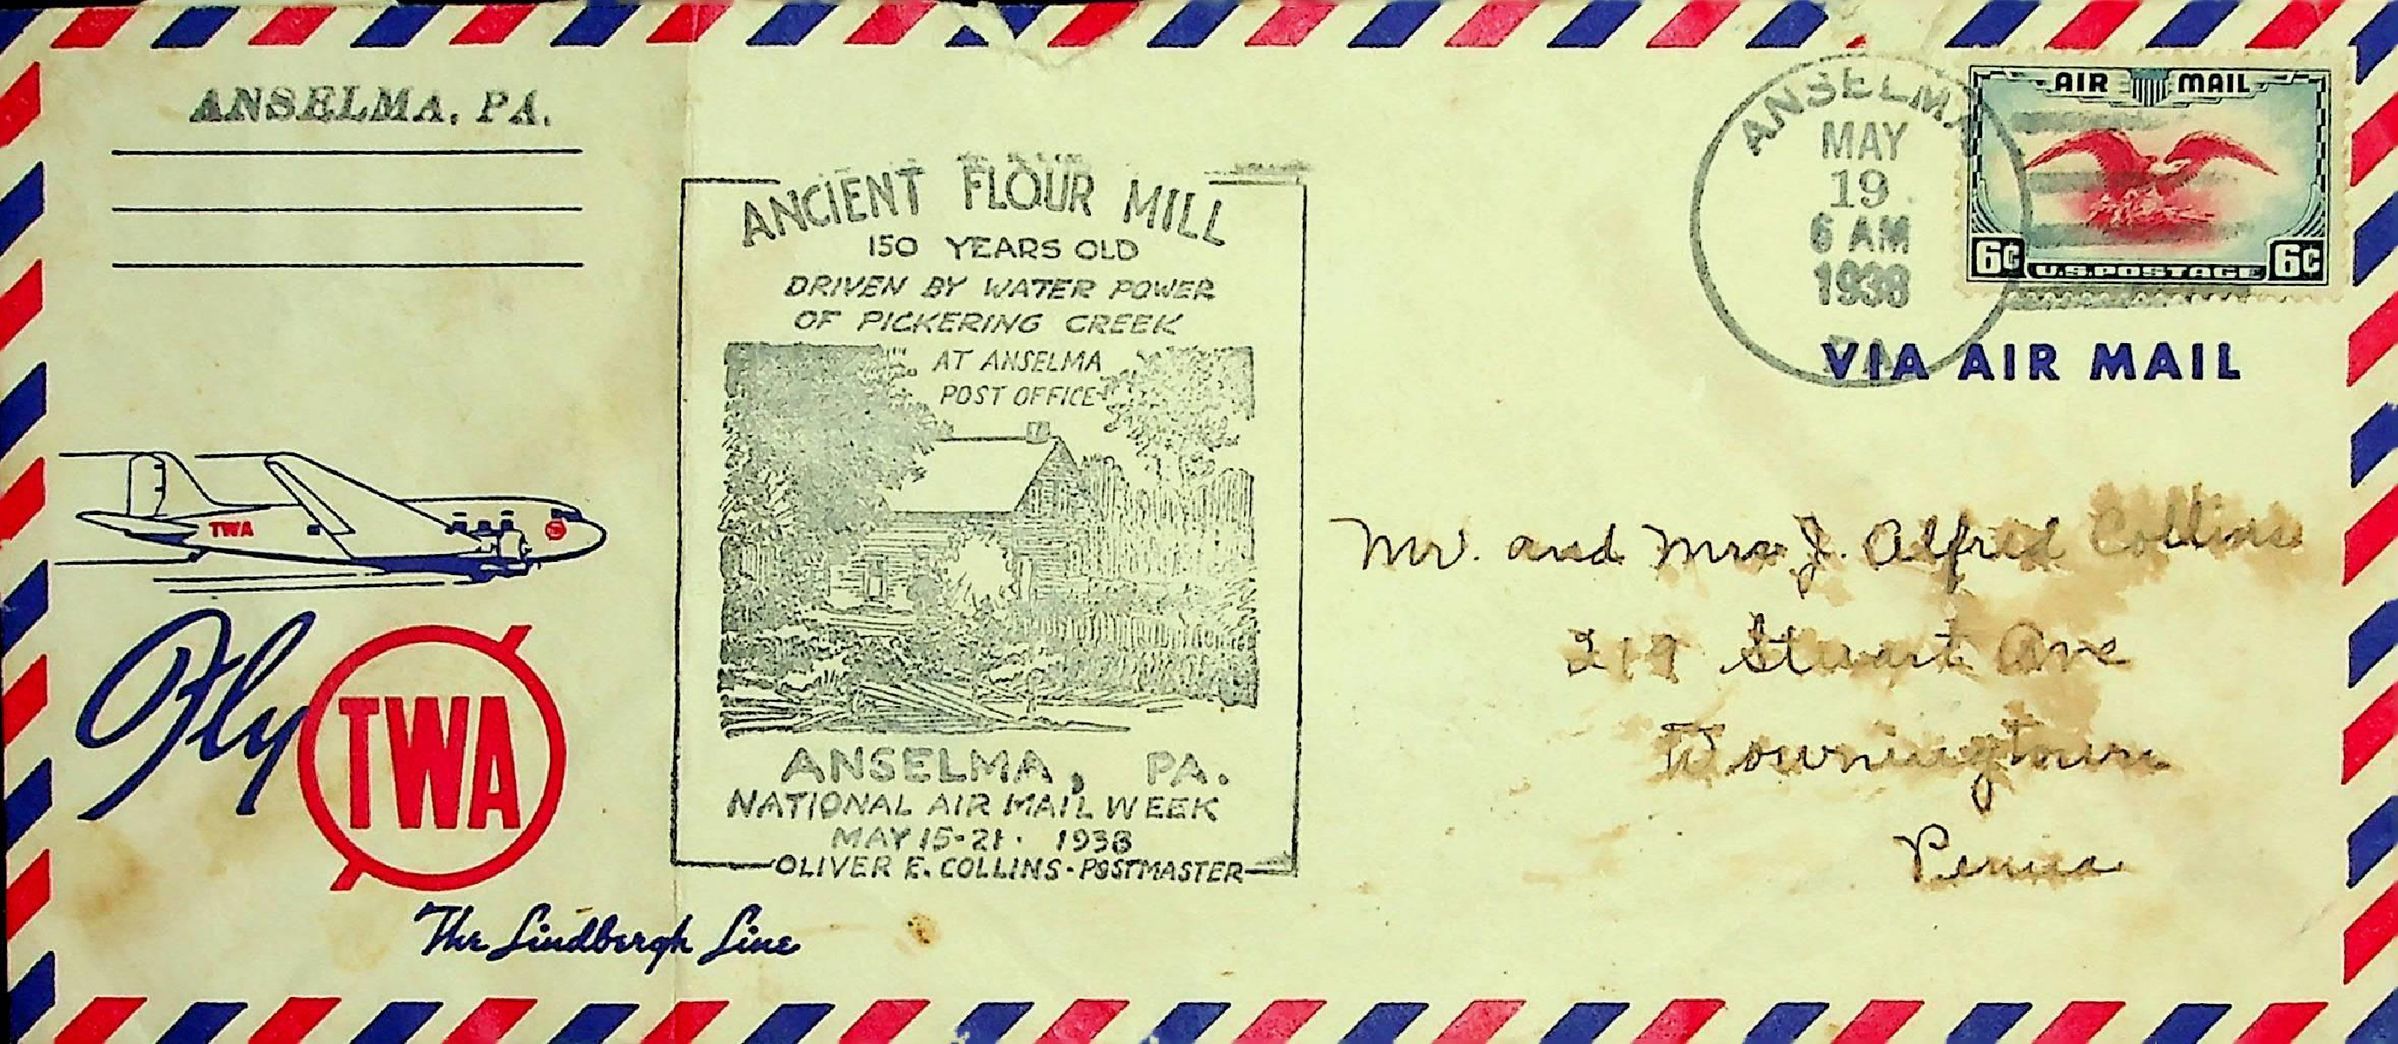 ANSELMA, PA.
ANCIENT FLOUR MILL
150 YEARS OLD
DRIVEN BY WATER POWER
OF PICKERING CREEK
AT ANSELMA
POST OFFICE
ANSELMA, PA.
NATIONAL AIR MAIL WEEK
MAY 15-21. 1938
OLIVER E. COLLINS - POSTMASTER
TWA
Fly TWA
The Lindbergh Line
ANSELMA
MAY
19
6 AM
1938
PA
AIR MAIL
6¢ U.S. POSTAGE 6¢
VIA AIR MAIL
Mr. and Mrs J. Alfred Collins
219 Stuart Ave
Downingtown
Penna